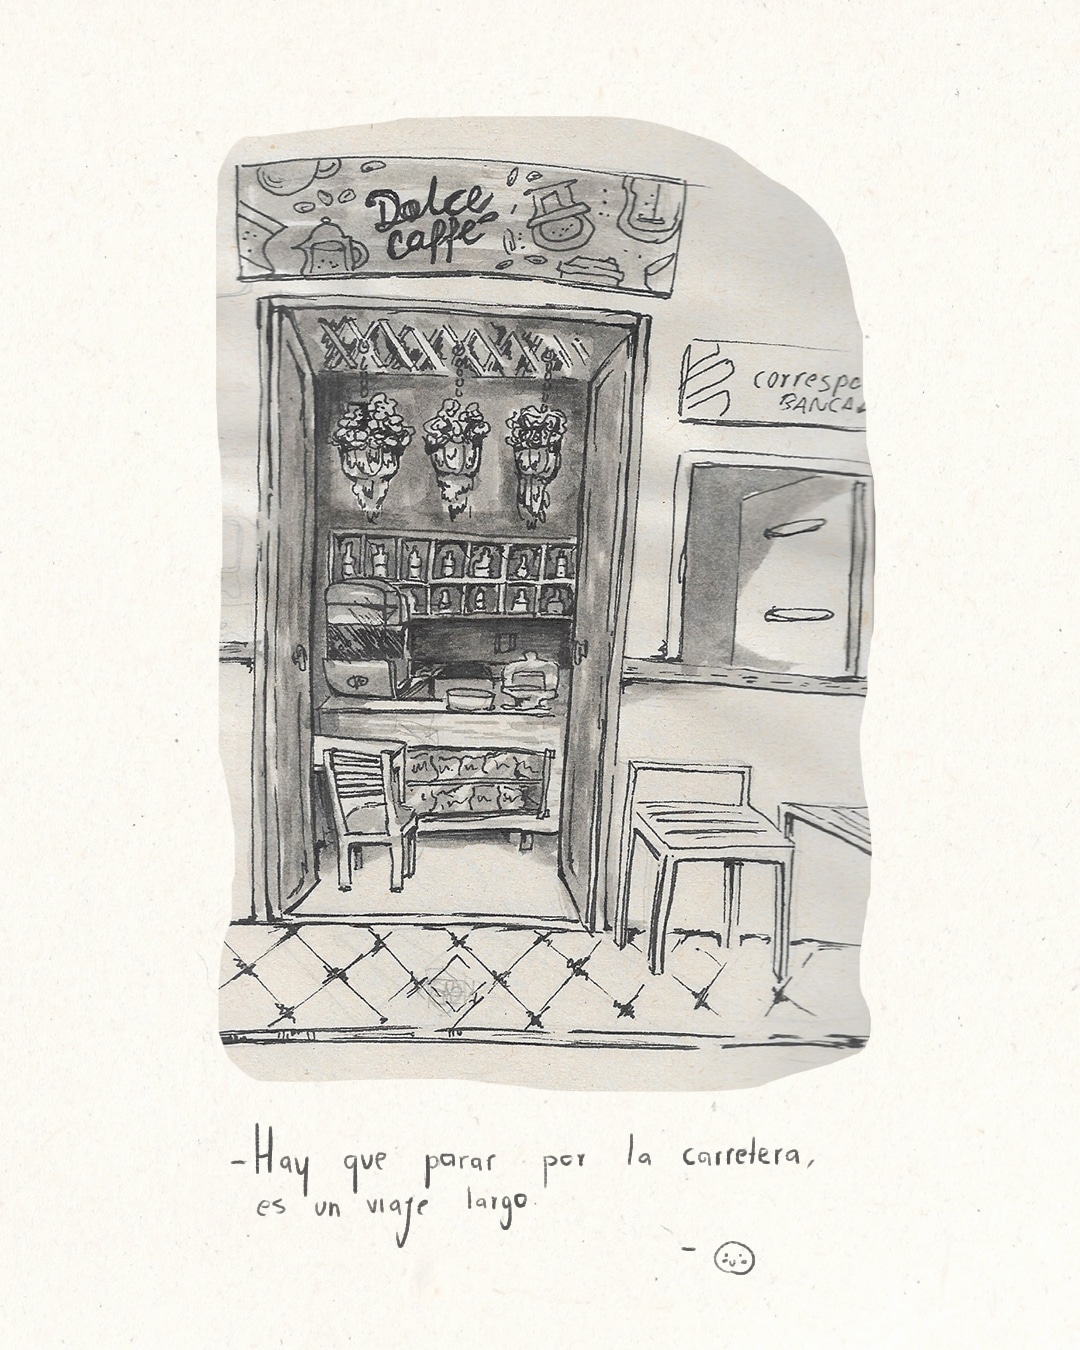 Dolce
caffé
correspo
BANCA
-Hay que parar por la carretera,
es un viaje largo.
-